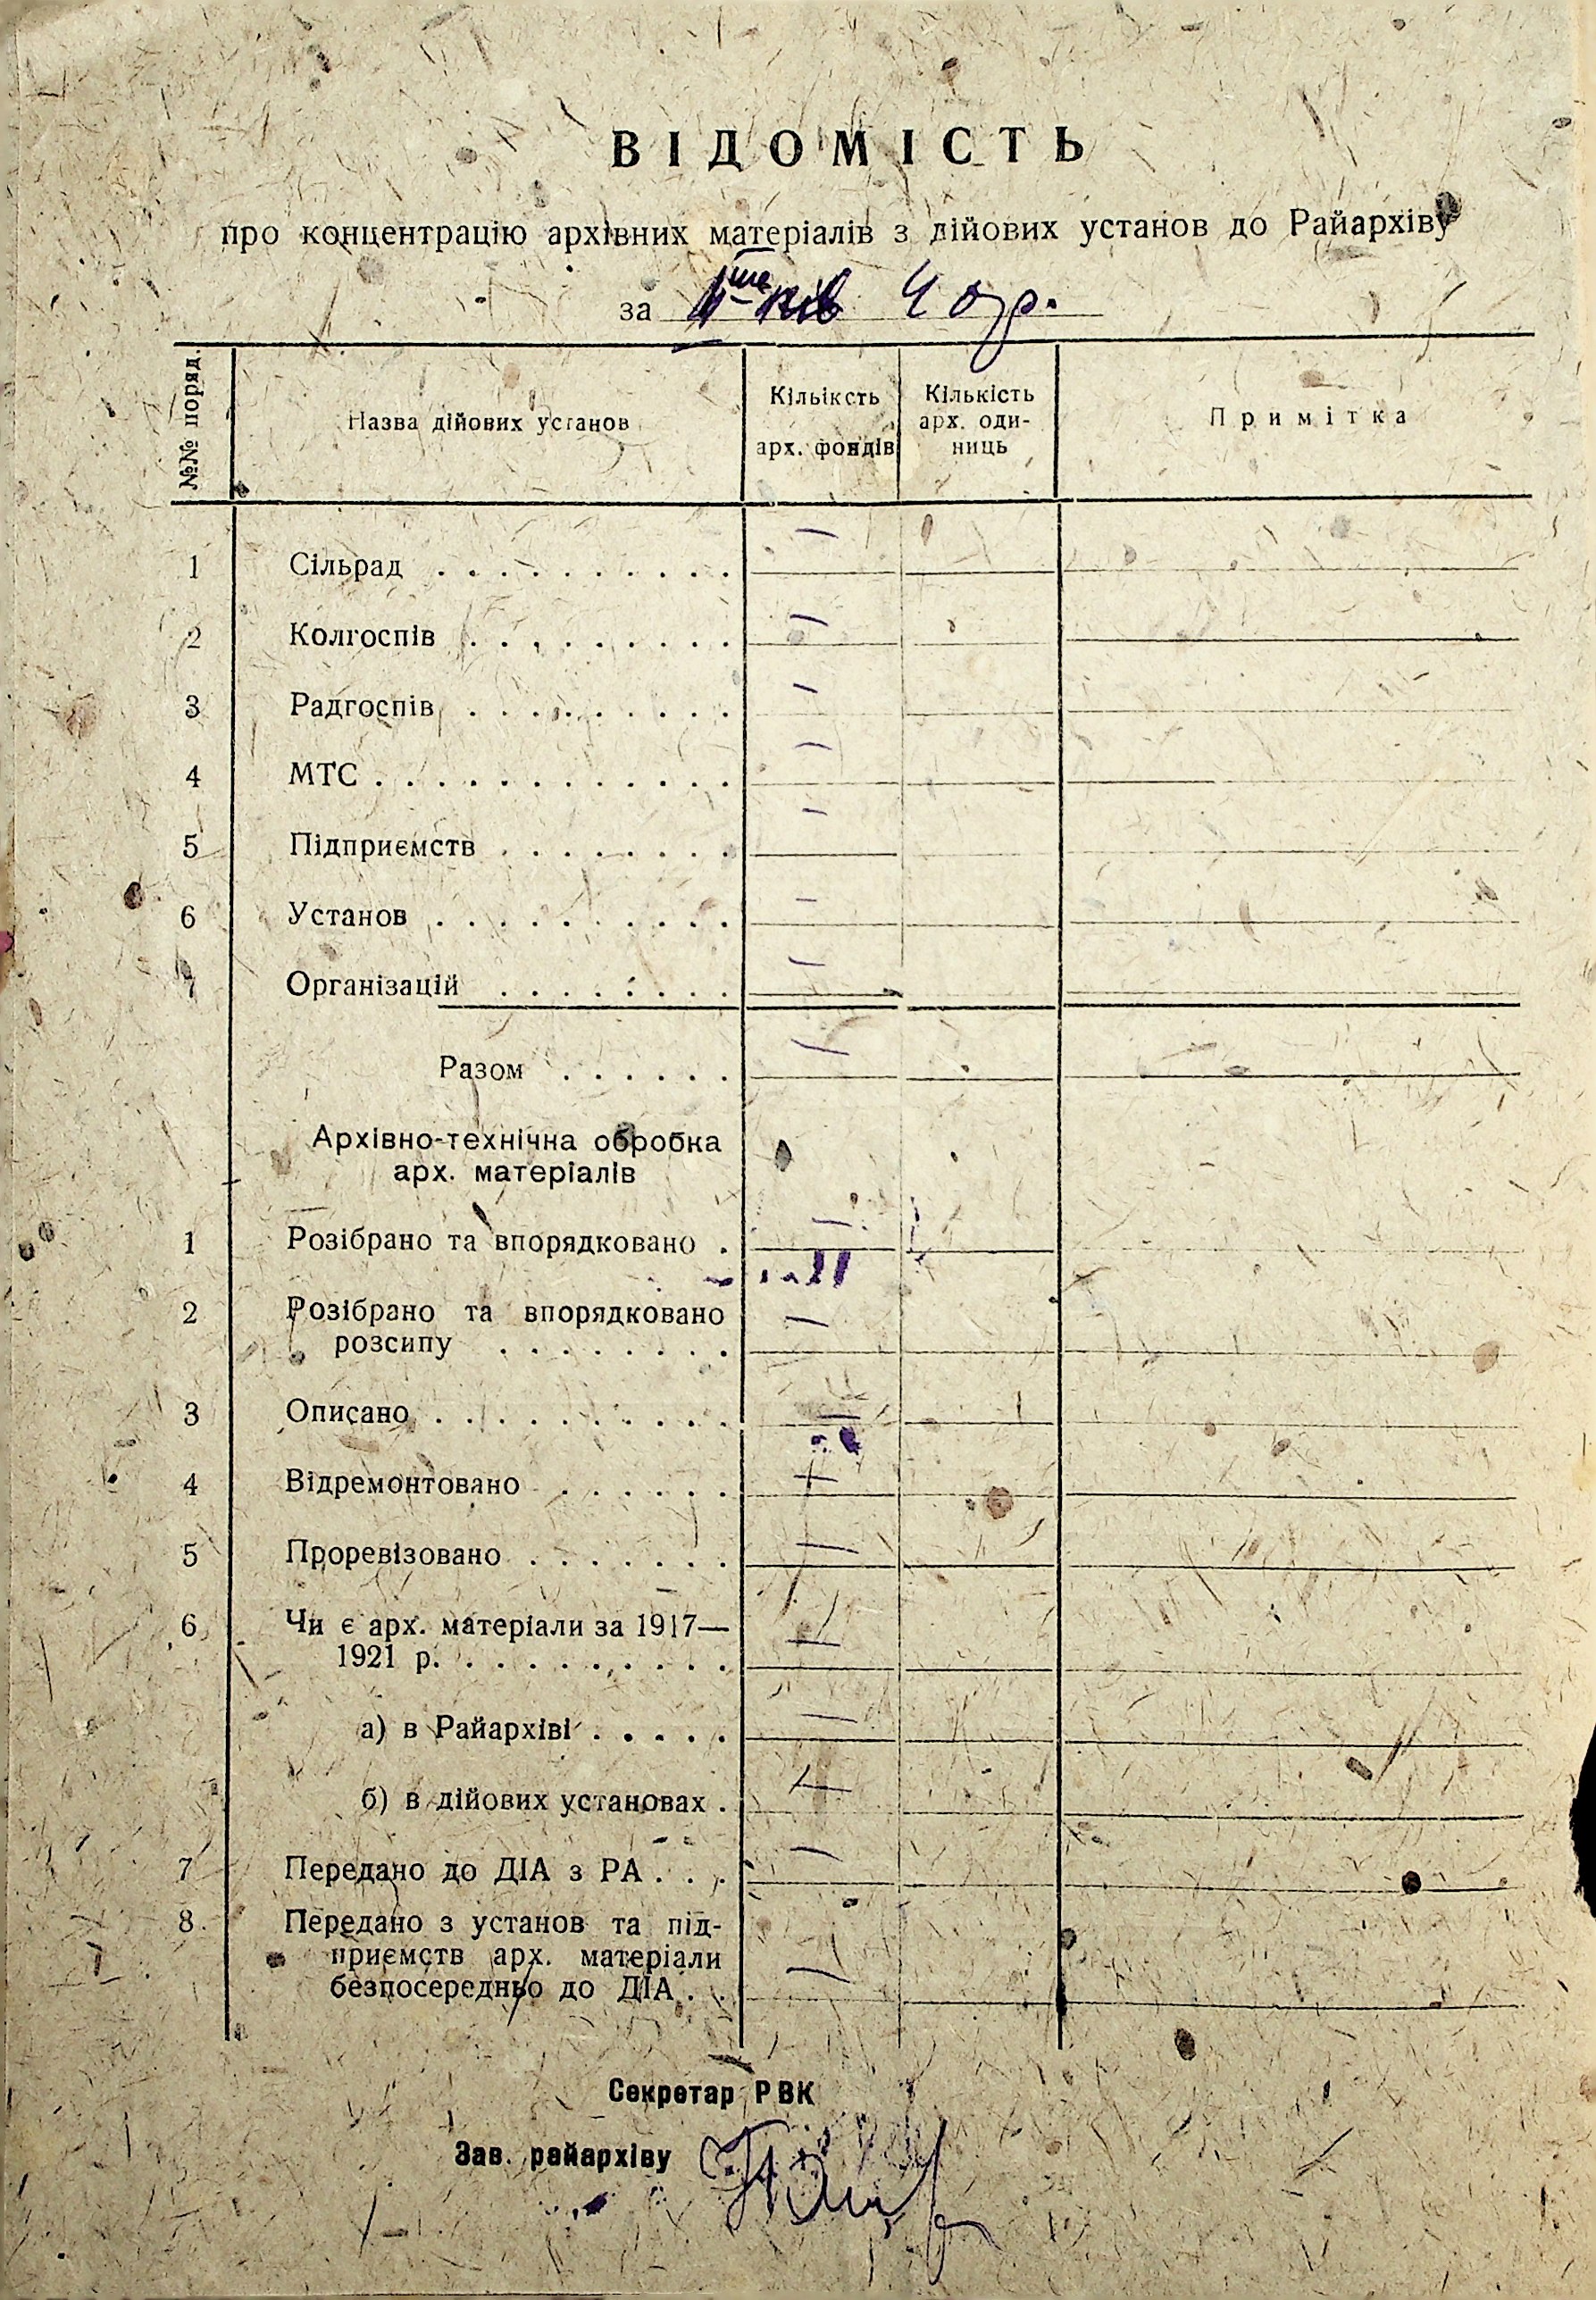 ВІДОМІСТЬ
про концентрацію архівних матеріалів з дійових установ до Райархіву
за кв 40 р.
№№ поряд.
Назва дійових установ
Кільікcть
арх. фондів
Кількість
арх. оди-
ниць
Примітка
1 Сільрад . . . . . . . . . . —
2 Колгоспів . . . . . . . . . —
3 Радгоспів . . . . . . . . . —
4 МТС . . . . . . . . . . . . —
5 Підприємств . . . . . . . . —
6 Установ . . . . . . . . . . —
7 Організацій . . . . . . . . —
Разом . . . . . . —
Архівно-технічна обробка
арх. матеріалів
1 Розібрано та впорядковано . —
2 Розібрано та впорядковано
розсипу . . . . . . . . —
3 Описано . . . . . . . . . . —
4 Відремонтовано . . . . . . —
5 Проревізовано . . . . . . . —
6 Чи є арх. матеріали за 1917—
1921 р. . . . . . . . . . —
а) в Райархіві . . . . . —
б) в дійових установах . —
7 Передано до ДІА з РА . . . —
8 Передано з установ та під-
приємств арх. матеріали
безпосередньо до ДІА . . —
Секретар РВК
Зав. райархіву